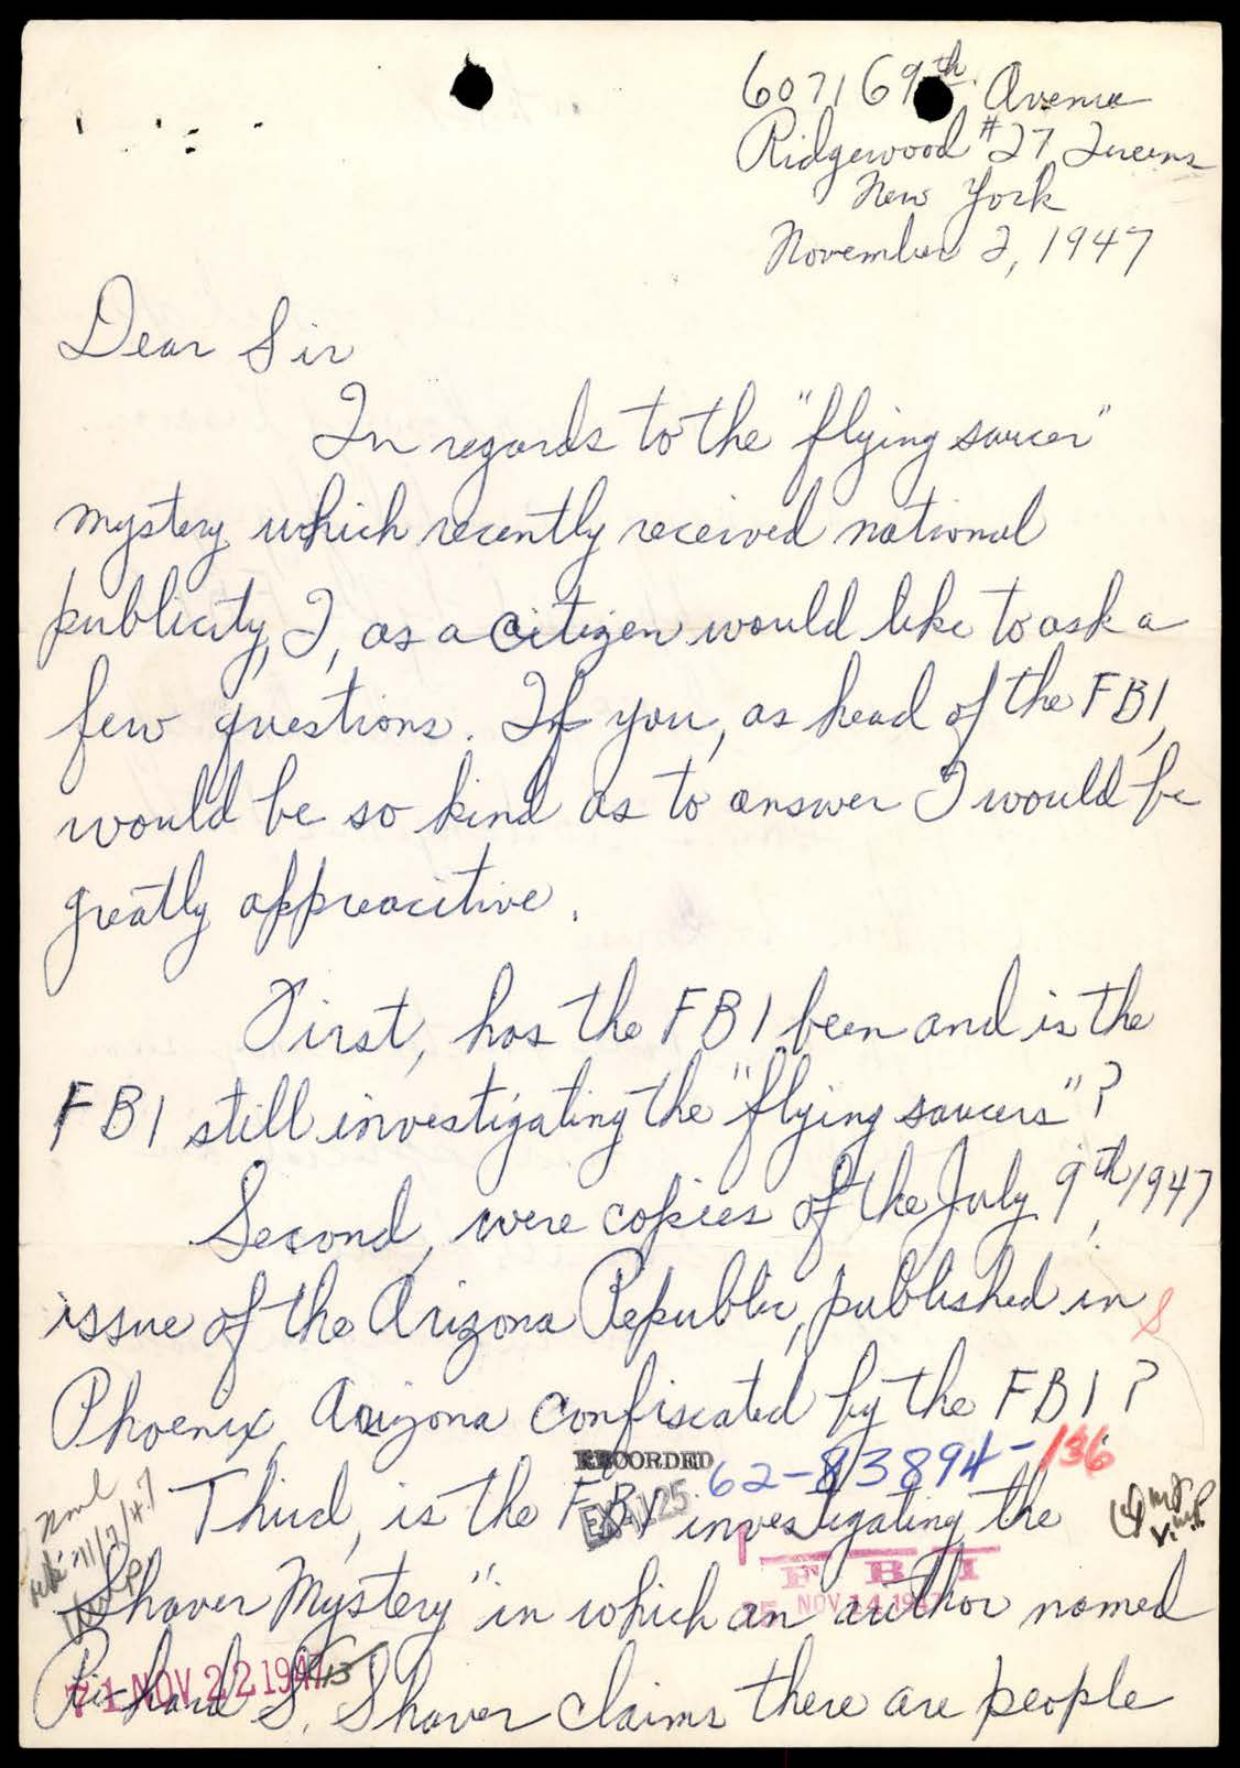 6071 69th Avenue
Ridgewood #27 Queens
New York
November 2, 1947
Dear Sir
In regards to the "flying saucer"
mystery which recently received national
publicity, I, as a citizen would like to ask a
few questions. If you, as head of the FBI,
would be so kind as to answer I would be
greatly appreacitive.
First, has the FBI been and is the
FBI still investigating the "flying saucers"?
Second, were copies of the July 9th, 1947
issue of the Arizona Republic, published in
Phoenix, Arizona confiscated by the FBI?
RECORDED
62-83894-136
Third, is the FBI investigating the
EX-125
F B I
"Shaver Mystery" in which an author named
NOV 14 1947
71 NOV 22 1947
Richard S. Shaver claims there are people